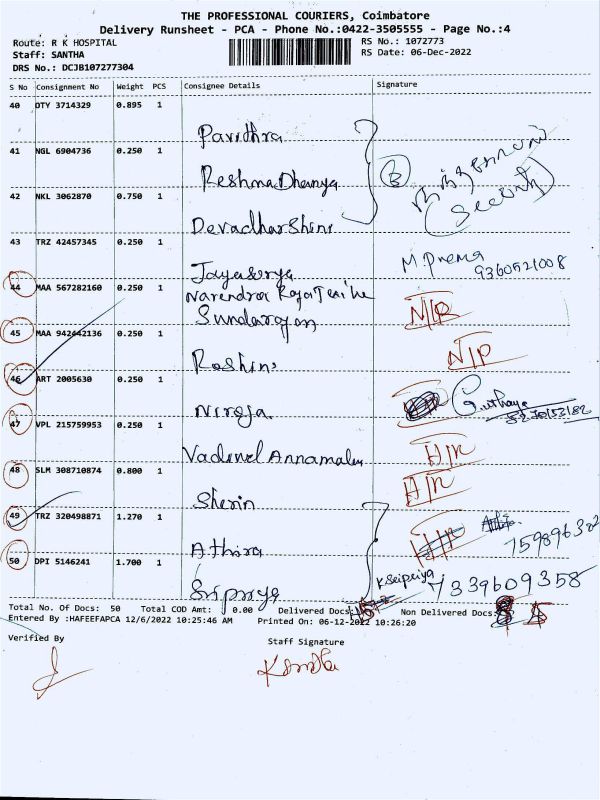 THE PROFESSIONAL COURIERS, Coimbatore
Delivery Runsheet - PCA - Phone No.:0422-3505555 - Page No.:4
Route: R K HOSPITAL
RS No.: 1072773
Staff: SANTHA
RS Date: 06-Dec-2022
DRS No.: DCJB107277304
S No Consignment No Weight PCS Consignee Details Signature
40 OTY 3714329 0.895 1
Pavithra
41 NGL 6904736 0.250 1
Reshma Dhanya
42 NKL 3062870 0.750 1
(Security)
Devadharshini
43 TRZ 42457345 0.250 1
M. Prema
9360521008
Jayasurya
44 MAA 567282160 0.250 1
Narendra Raja
Sundarajan
N/P
45 MAA 942442136 0.250 1
N/P
Roshini
46 ART 2005630 0.250 1
Niroja
47 VPL 215759953 0.250 1
Vadivel Annamalai
48 SLM 308710874 0.800 1
Sherin
49 TRZ 320498871 1.270 1
Athira
50 DPI 5146241 1.700 1
K Sripriya
7339609358
Sripriya
Total No. Of Docs: 50 Total COD Amt: 0.00 Delivered Docs: Non Delivered Docs:
Entered By :HAFEEFAPCA 12/6/2022 10:25:46 AM Printed On: 06-12-2022 10:26:20
Verified By
Staff Signature